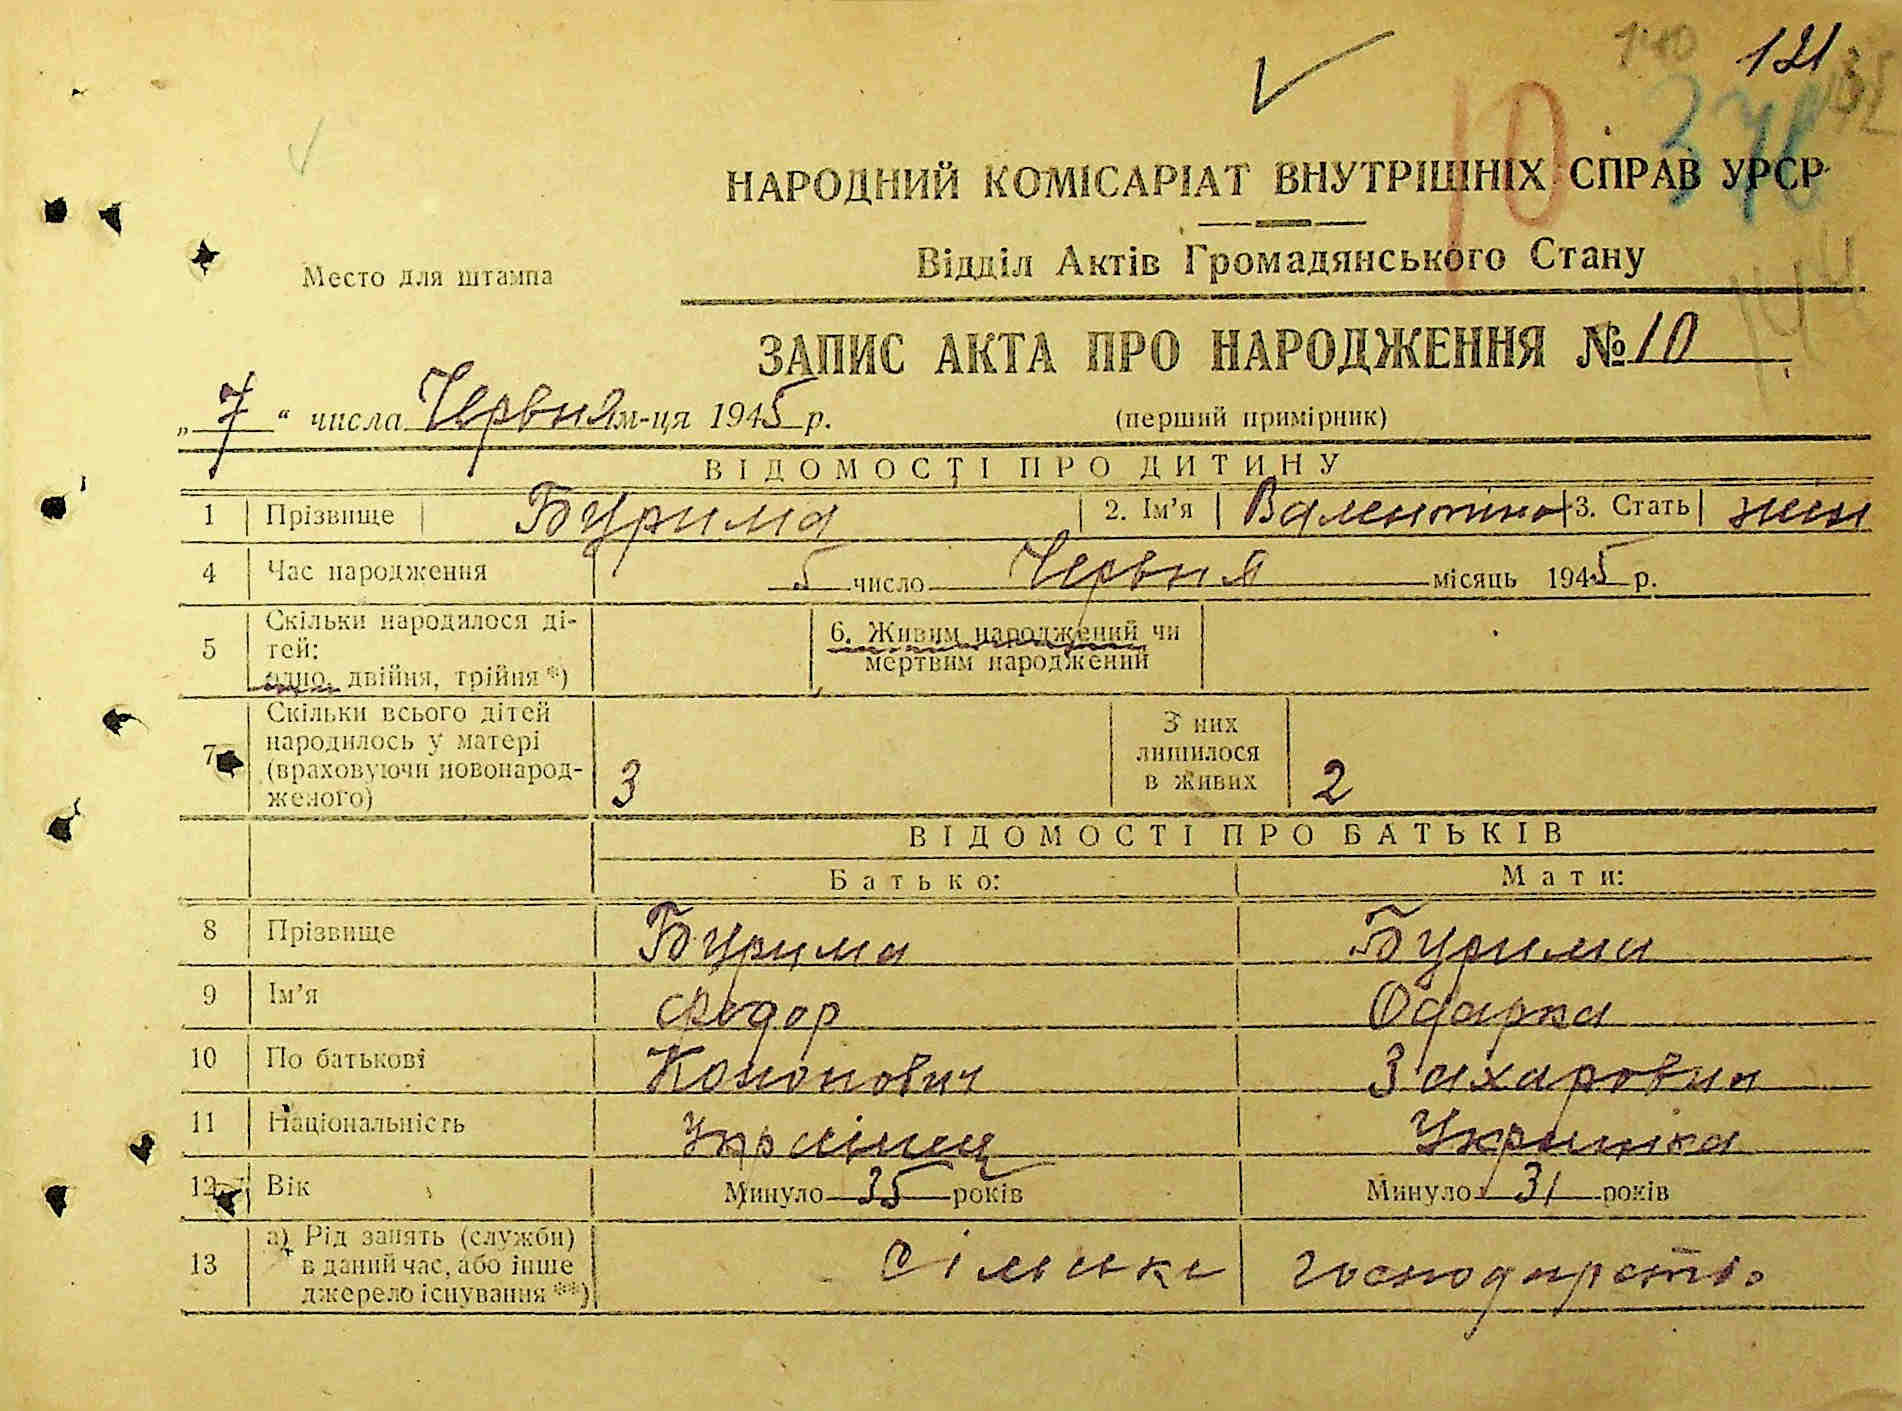 121
10
НАРОДНИЙ КОМІСАРІАТ ВНУТРІШНІХ СПРАВ УРСР
Место для штампа
Відділ Актів Громадянського Стану
ЗАПИС АКТА ПРО НАРОДЖЕННЯ № 10
„ 7 “ числа Червня м-ця 1945 р.
(перший примірник)
ВІДОМОСТІ ПРО ДИТИНУ
1 Прізвище Бурима 2. Ім'я Валентина 3. Стать жін
4 Час народження 5 число Червня місяць 1945 р.
5 Скільки народилося ді-
тей:
одно, двійня, трійня *)
6. Живим народжений чи
мертвим народжений
7 Скільки всього дітей
народилось у матері
(враховуючи новонарод-
женого) 3
З них
лишилося
в живих 2
ВІДОМОСТІ ПРО БАТЬКІВ
Батько: Мати:
8 Прізвище Бурима Бурима
9 Ім'я Федор Одарка
10 По батькові Кононович Захаровна
11 Національність Украінец Украинка
12 Вік Минуло 35 років Минуло 31 років
13 а) Рід занять (служби)
в даний час, або інше
джерело існування **)
Сільське господарство